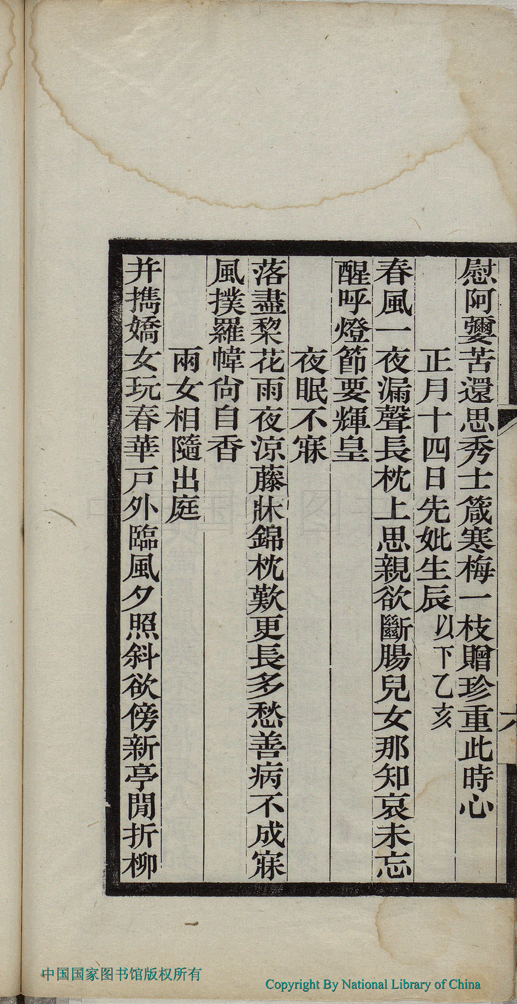 慰阿㜷苦還思秀士箴寒梅一枝贈珍重此時心
正月十四日先妣生辰以下乙亥
春風一夜漏聲長枕上思親欲斷腸兒女那知哀未忘
醒呼燈節要輝皇
夜眠不寐
落盡棃花雨夜涼藤牀錦枕歎更長多愁善病不成寐
風撲羅幃尙自香
兩女相隨出庭
并攜嬌女玩春華戸外臨風夕照斜欲傍新亭閒折柳
六
中国国家图书馆版权所有
Copyright By National Library of China